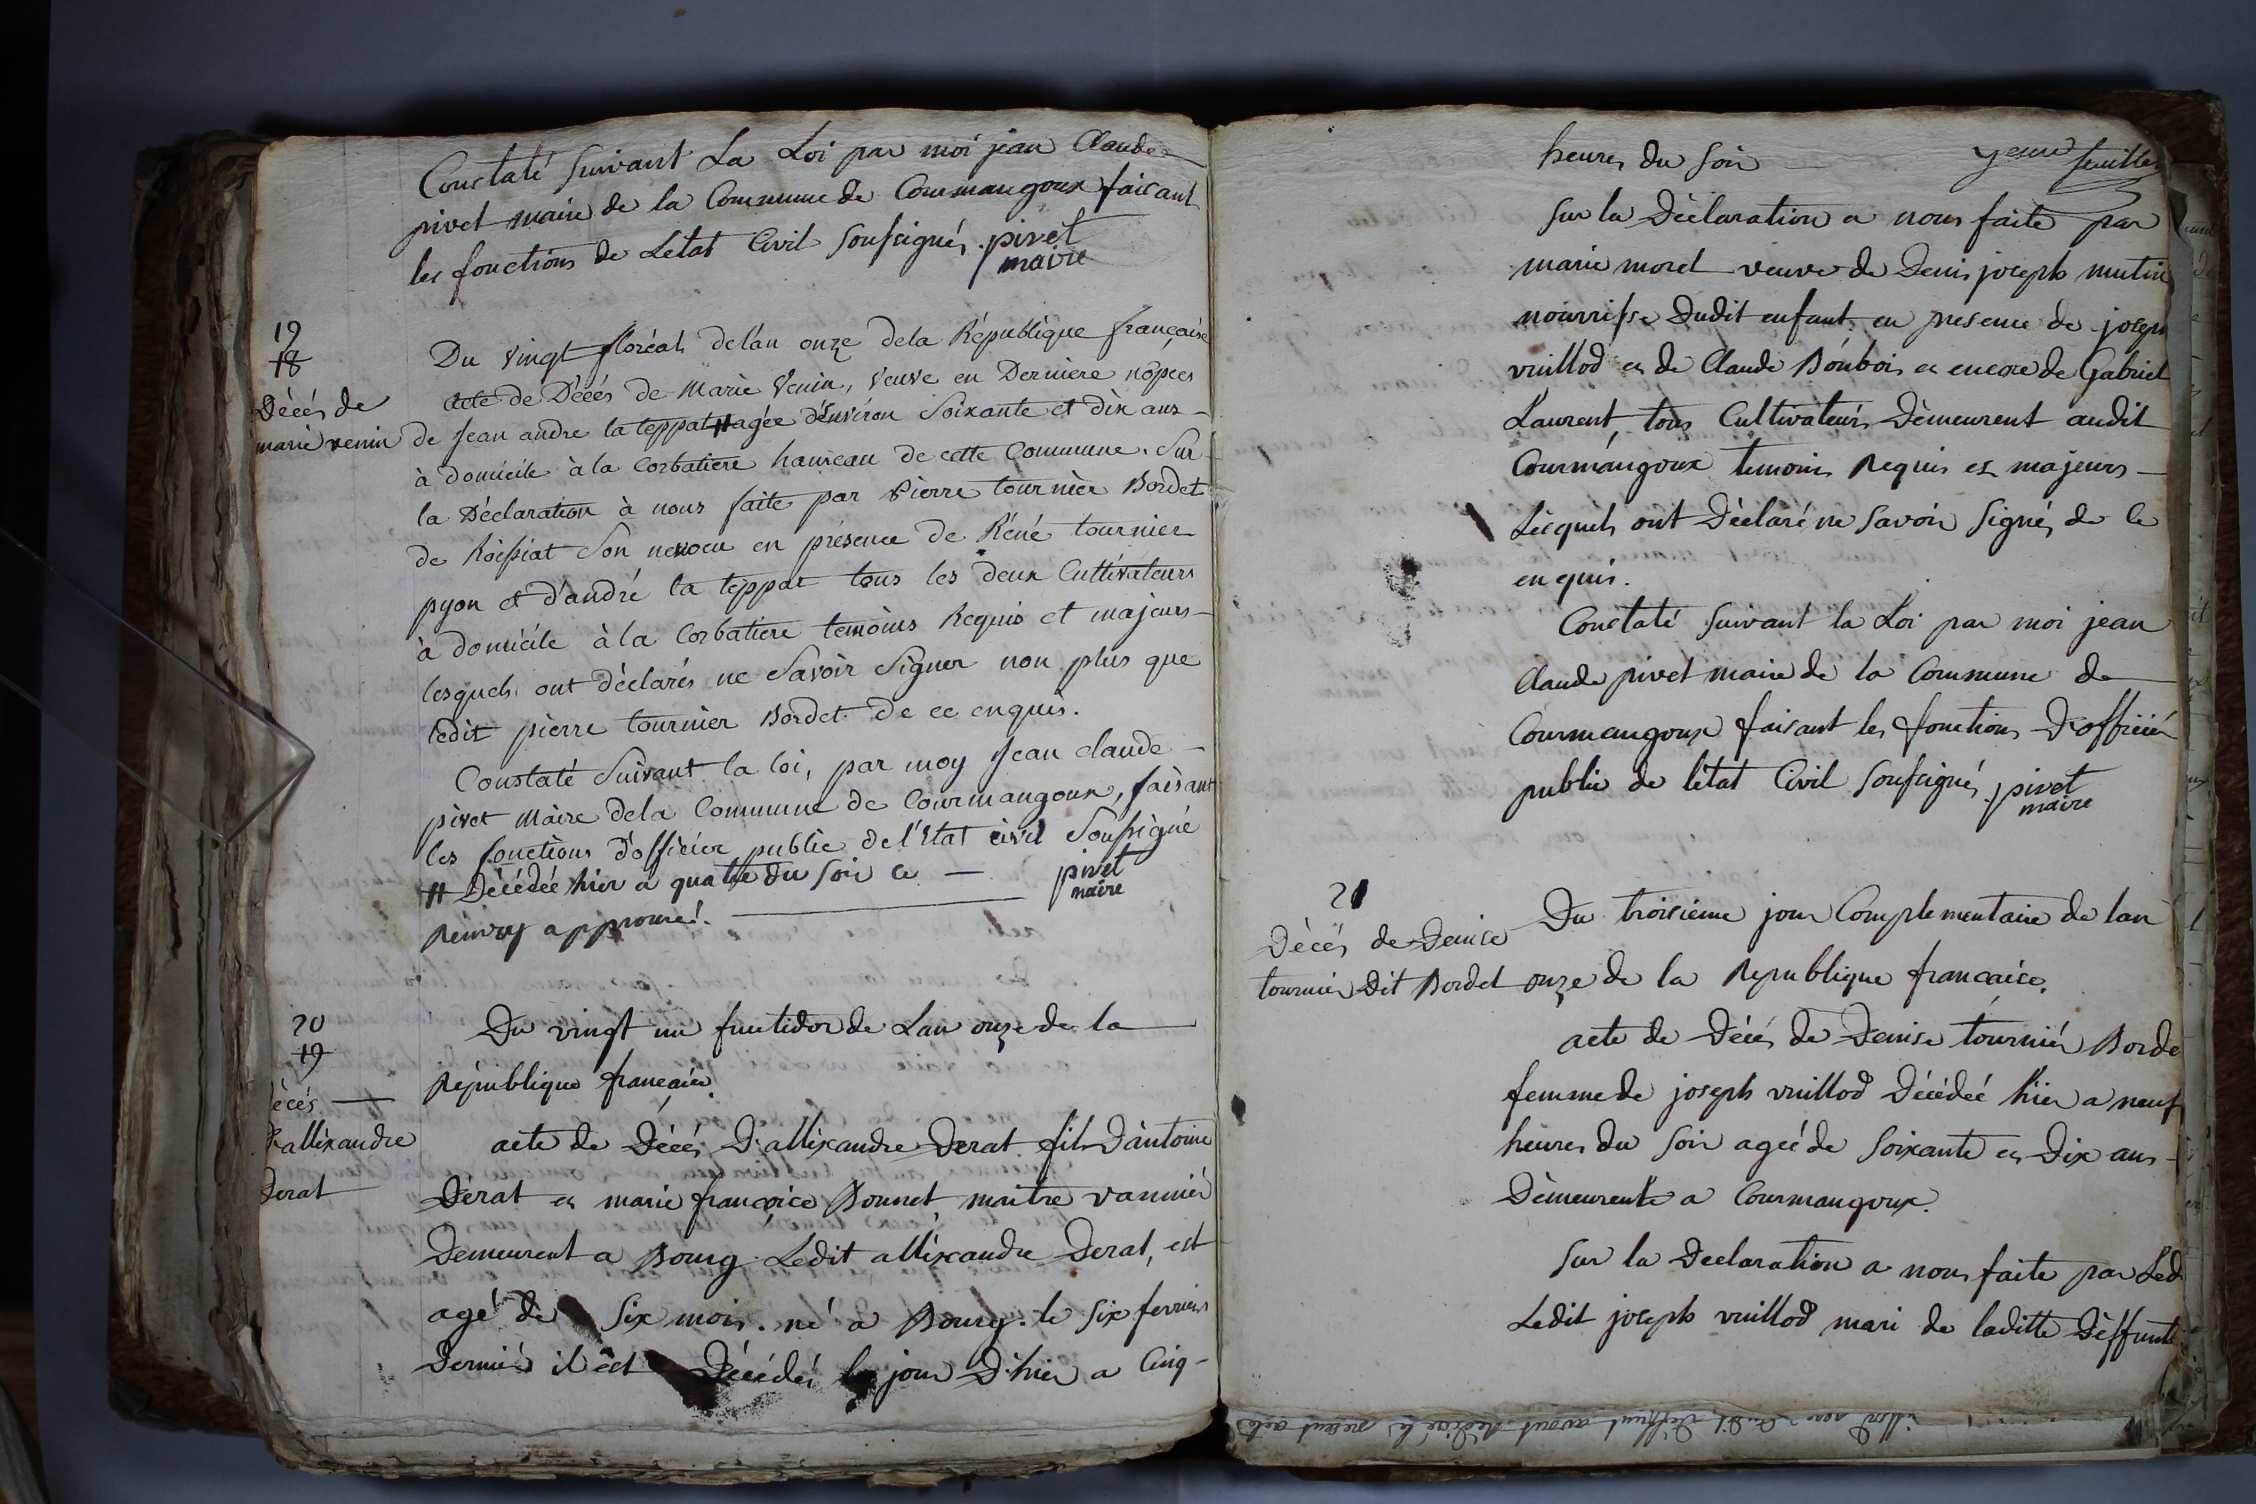 Constaté suivant La Loi par moi jean Claude
pivet maire de la Commune de Courmangoux faisant
les fonctions de Letat Civil soussignés. pivet
maire
19
18
Décés de
marie venin
Du vingt floréal delán onze dela République française
Acte de Décés de Marie Venin, veuve en Derniere nópces
de Jean andre la teppat # agée d'environ soixante et dix ans
à domicile à la Corbatiere hameau de cette Commune. Sur
la Déclaration à nous faite par Pierre tournièr Bordet
de Roissiat Son neuoeu en présence de Réné tournier
pyon et d'andré la teppat tous les deux Cultivateurs
à domicile à la Corbatiere temoins Requis et majeurs
lesquels ont déclarés ne Savoir Signer non plus que
ledit pierre tournier Bordet de ce enquis.
Constaté Suivant la loi, par moy Jean claude
pivet Maire dela Commune de Courmangoux, faisant
les fonctions d'officier public de l'Etat civil Soussigné
# Décédée hier a quatre du soir ce pivet
maire
Renvoy approuvé.
20
19
écés
D'alléxandre
Derat
Du vingt un fructidor de Lan onze de la
République française.
acte de Décés D'alléxandre Derat fils D'antoine
Dérat et marie françoise Bonnet, maitre vannier
Demeurent a Bourg. Ledit alléxandre Derat, est
agé de six mois. né a Bourg. le six ferrier
Dernier il est Décédés le jour D'hier a Cinq
heures du soir
feuille
sur la Déclaration a nous faite par
marie morel veuve de Denis joseph mutin
nourrisse Dudit enfant. en presence de joseph
vuillod et de Claude Bónbois et encore de Gabriel
Laurent, tous Cultivateurs Démeurent audit
Courmángoux temoins Requis et majeurs
Lésquels ont Déclaré ne savoir signés de ce
enquis.
Constaté suivant la Loi par moi jean
Claude pivet maire de la Commune de
Courmangoux faisant les fonctions D'officiér
public de létat Civil soussigné. pivet
maire
21
Décés de Denise
tournier Dit Bordet
Du troisieme jour Complementaire de lan
onze de la Republique francaise.
acte de Décés de Denise tourniér Borde
femme de joseph vuillod Décédeé hier a neuf
heures du soir ageé de soixante et Dix ans
Démeurente a Courmangoux.
sur la Declaration a nous faite par Led
Ledit joseph vuillod mari de laditte Déffunte